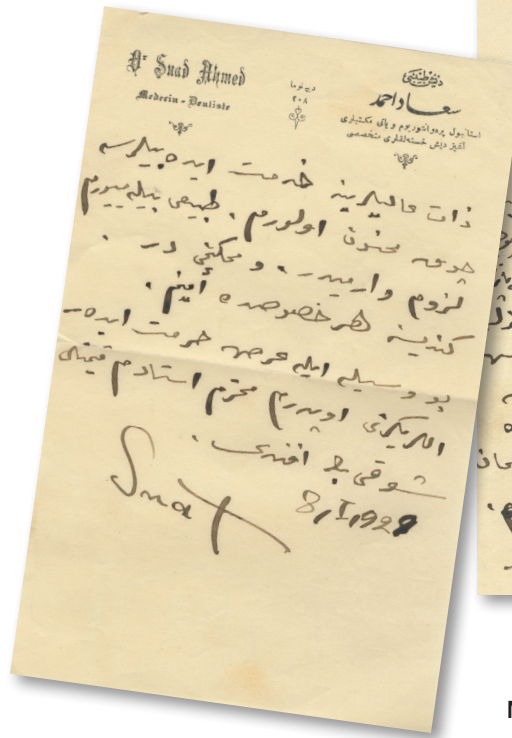 Dr Suad Ahmed
Medecin - Dentiste
ديپلوما
٢٠٨
ديش طبيبى
سعاد احمد
استانبول
آغيز ديش خسته‌لقلرى متخصصى
ذات عاليلرينه خدمت ايده بيلرسه
چوق ممنون اولورم. طبيعى بيله ميورم
لزوم وارميدر. و ممكنمى در.
كندينه هر خصوصده أمينم.
بو وسيله ايله عرض حرمت ايده
اللريكزى اوپه رم محترم استادم
شوقى بك افندى.
Suat
8, I, 928